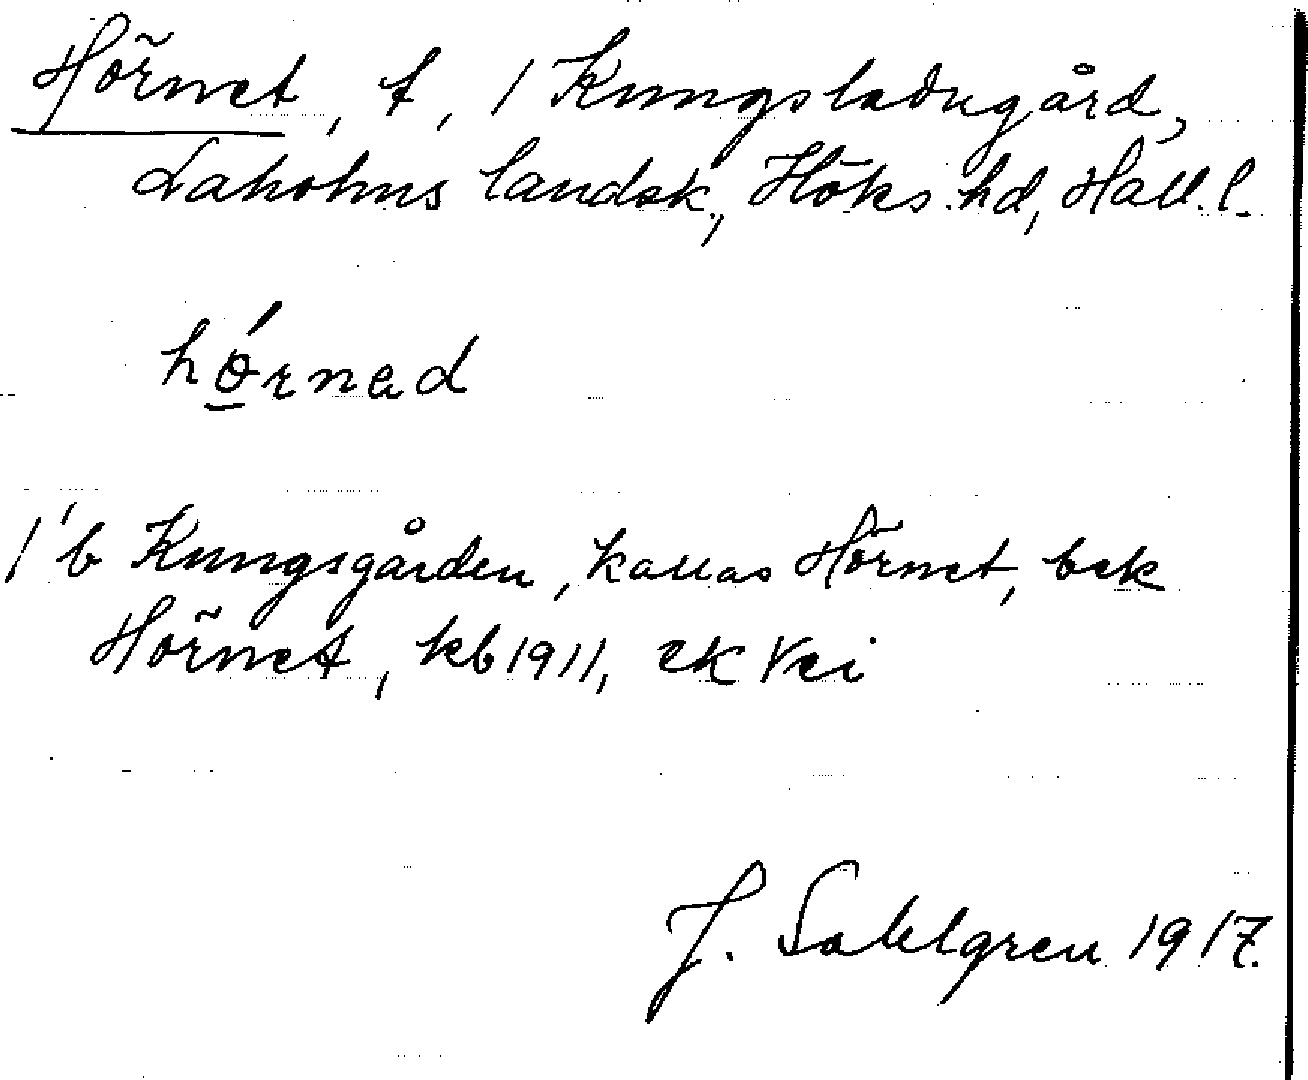 Hörnet, t, / Kungsladugård,
Laholms landsk., Höks hd, Hall. l.
hǿ̲rnad
/ b Kungsgården, kallas Hörnet, bek
Hörnet, kb 1911, ek
J. Sahlgren 1917.